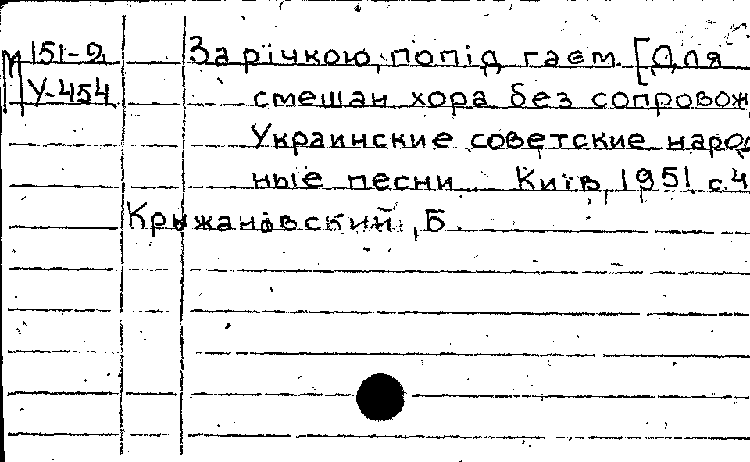 М 151-2 За рiчкою, попiд гаєм [Для
У-454 смешан хора без сопровож
Украинские советские народ
ные песни Київ, 1951 с.4
Крыжановский, Б.